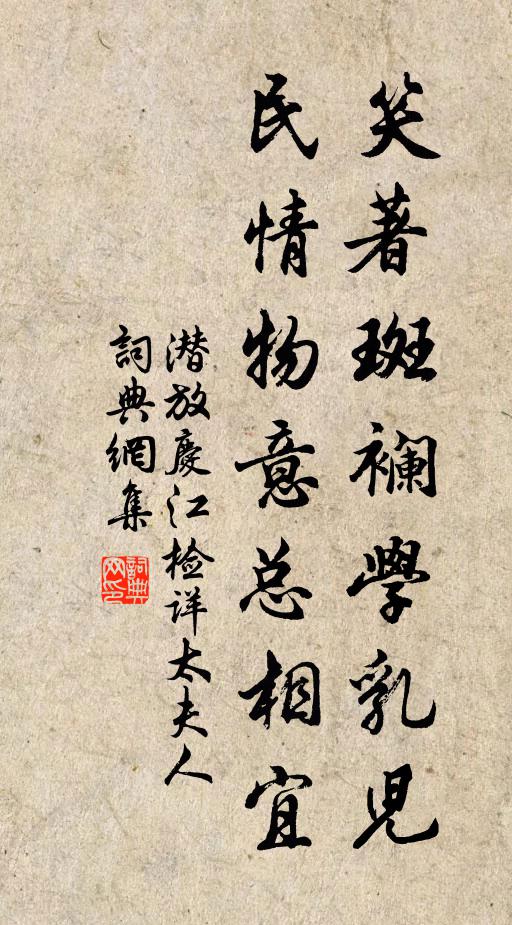 笑著斑斕學乳兒
民情物意总相宜
潜放慶江检详太夫人
詞典網集
詞典网印